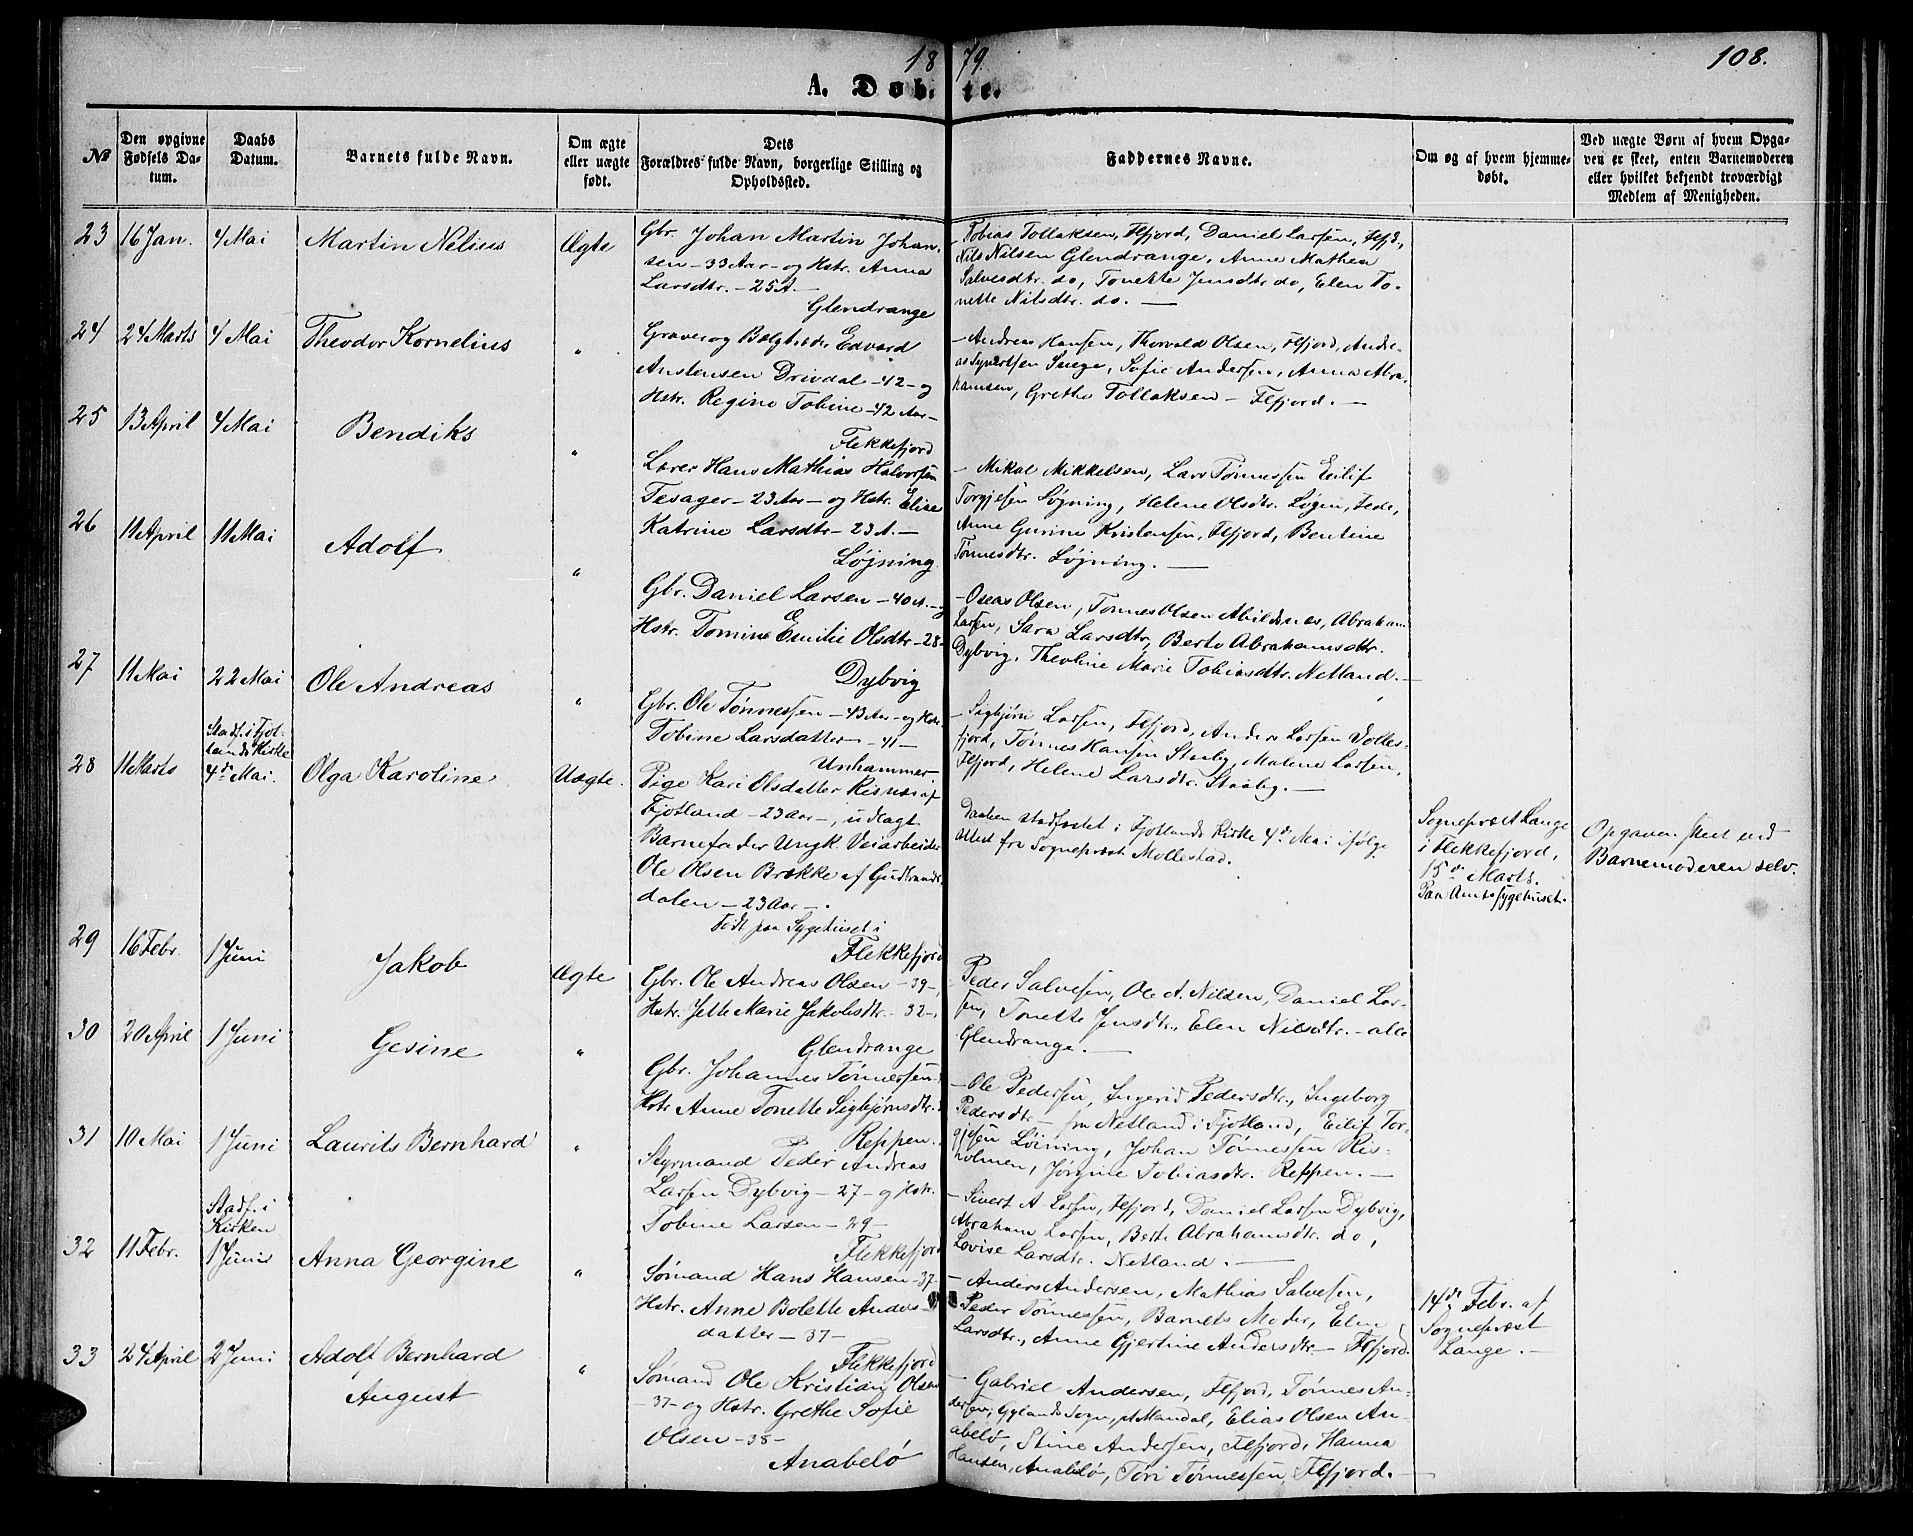 1879.
108.
A. Døbte.
No
Den opgivne Fødsels Datum.
Daabs Datum.
Barnets fulde Navn.
Om ægte eller uægte født.
Dets Forældres fulde Navn, borgerlige Stilling og Opholdssted.
Faddernes Navne.
Om og af hvem hjemmedøbt.
Ved uægte Børn af hvem Opgaven er skeet, enten Barnemoderen eller hvilket bekjendt troværdigt Medlem af Menigheden.
23 16 Jan. 4 Mai Martin Nelius Ægte
Gbr. Johan Martin Johan-
sen - 33 Aar - og Hstr. Anna
Larsdtr. - 25 A. -
Glendrange
Tobias Tollaksen, Flfjord, Daniel Larsen, Flfjd.,
Nils Nilsen Glendrange, Anne Mathea
Salvesdtr. do, Tonette Jensdtr do, Elen To-
nette Nilsdtr. do. -
24 24 Marts 4 Mai Theodor Kornelius "
Graver og Bælgtræder Edvard
Anstensen Drivdal - 42 - og
Hstr. Regine Tobine - 42 Aar -
Flekkefjord
- Andreas Hansen, Thorvald Olsen, Flfjord, Andre-
as Syvertsen Suege, Sofie Andersen, Anna Abra-
hamsen, Grethe Tollaksen - Flfjord. -
25 13 April 4 Mai Bendiks "
Lærer Hans Mathias Halvorsen
Tesager - 23 Aar - og Hstr. Elise
Katrine Larsdtr - 23 A. -
Løjning
- Mikal Mikkelsen, Lars Tønnessen Eilif
Torgjesen Løgning, Helene Olsdtr. Løgen, Fede,
Anne Gurine Kristensen, Flfjord, Bentine
Tønnesdtr. Løjning. -
26 11 April 11 Mai Adolf "
Gbr. Daniel Larsen - 40 A. - og
Hstr. Tomine Emilie Olsdtr - 28 -
Dybvig
- Oseas Olsen, Tønnes Olsen Abildsnes, Abraham
Larsen, Sara Larsdtr, Berte Abrahamsdtr.
Dybvig, Theoline Marie Tobiasdtr. Netland. -
27 11 Mai 22 Mai Ole Andreas "
Gbr. Ole Tønnessen - 43 Aar - og Hstr
Tobine Larsdatter - 41 -
Unhammer
- Sigbjørn Larsen, Flfjord, Anders Larsen Volles-
fjord, Tønnes Hansen Staaby, Malene Larsen,
Flfjord, Helene Larsdtr. Staaby. -
28 11 Marts
Stadf. i Fjot-
lands Kirke
4de Mai. Olga Karoline Uægte.
Pige Kari Olsdatter Risnes af
Fjotland - 23 Aar -, udlagt
Barnefader Ungk. Veiarbeider
Ole Olsen Brække af Gudbrands-
dalen - 23 Aar -.
Født paa Sygehuset i
Flekkefjord
Daaben stadfæstet i Fjotlands Kirke 4de Mai ifølge
attest fra Sognepræst Mollestad.
Sognepræst Lange
i Flekkefjord,
15de Marts.
Paa Amtssygehuset.
Opgaven skeet ved
Barnemoderen selv.
29 16 Febr. 1 Juni Jakob Ægte
Gbr. Ole Andreas Olsen - 39 -,
Hstr. Jette Marie Jakobsdtr - 32 -,
Glendrange
Peder Salvesen, Ole A. Nilsen, Daniel Lar-
sen, Tonette Jensdtr., Elen Nilsdtr. - alle
Glendrange. -
30 20 April 1 Juni Gesine "
Gbr. Johannes Tønnessen
Hstr. Anne Tonette Sigbjørnsdtr.
Reppen.
- Ole Pedersen, Ingerid Pedersdtr., Ingeborg
Pedersdtr - fra Netland i Fjotland, Eilif Tor-
gjesen Løining, Johan Tønnessen Ris-
holmen, Jørgine Tobiasdtr. Reppen. -
31 10 Mai 1 Juni Laurits Bernhard "
Styrmand Peder Andreas
Larsen Dybvig - 27 - og Hstr.
Tobine Larsen - 29 -
Flekkefjord
- Sivert A Larsen, Flfjord, Daniel Larsen Dybvig,
Abraham Larsen, Berte Abrahamsdtr. do,
Lovise Larsdtr. Netland. -
32 11 Febr.
Stadf. i
Kirken
1 Juni Anna Georgine "
Sømand Hans Hansen - 37 -
Hstr. Anne Bolette Anders-
datter - 37 -
Flekkefjord
- Anders Andersen, Mathias Salvesen,
Peder Tønnessen, Barnets Moder, Elen
Larsdtr., Anne Gjertine Andersdtr. - Flfjord.
14de Febr. af
Sognepræst
Lange. -
33 24 April 2 Juni Adolf Bernhard
August "
Sømand Ole Kristian Olsen
- 37 - og Hstr. Grethe Sofie
Olsen - 38 -
Anabelø
- Gabriel Andersen, Flfjord, Tønnes An-
dersen, Gylands Sogn, Mandal, Elias Olsen An-
abelø, Stine Andersen, Flfjord, Hanna
Hansen, Anabelø, Tori Tønnessen, Flfjord. -